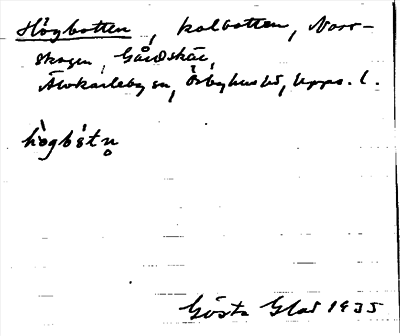 Högbotten, kolbotten, Norr-
skogen, Gårdskär,
Älvkarleby sn, Örbyhus hd, Upps. l.
hògbótn̥
Gösta Glad 1935